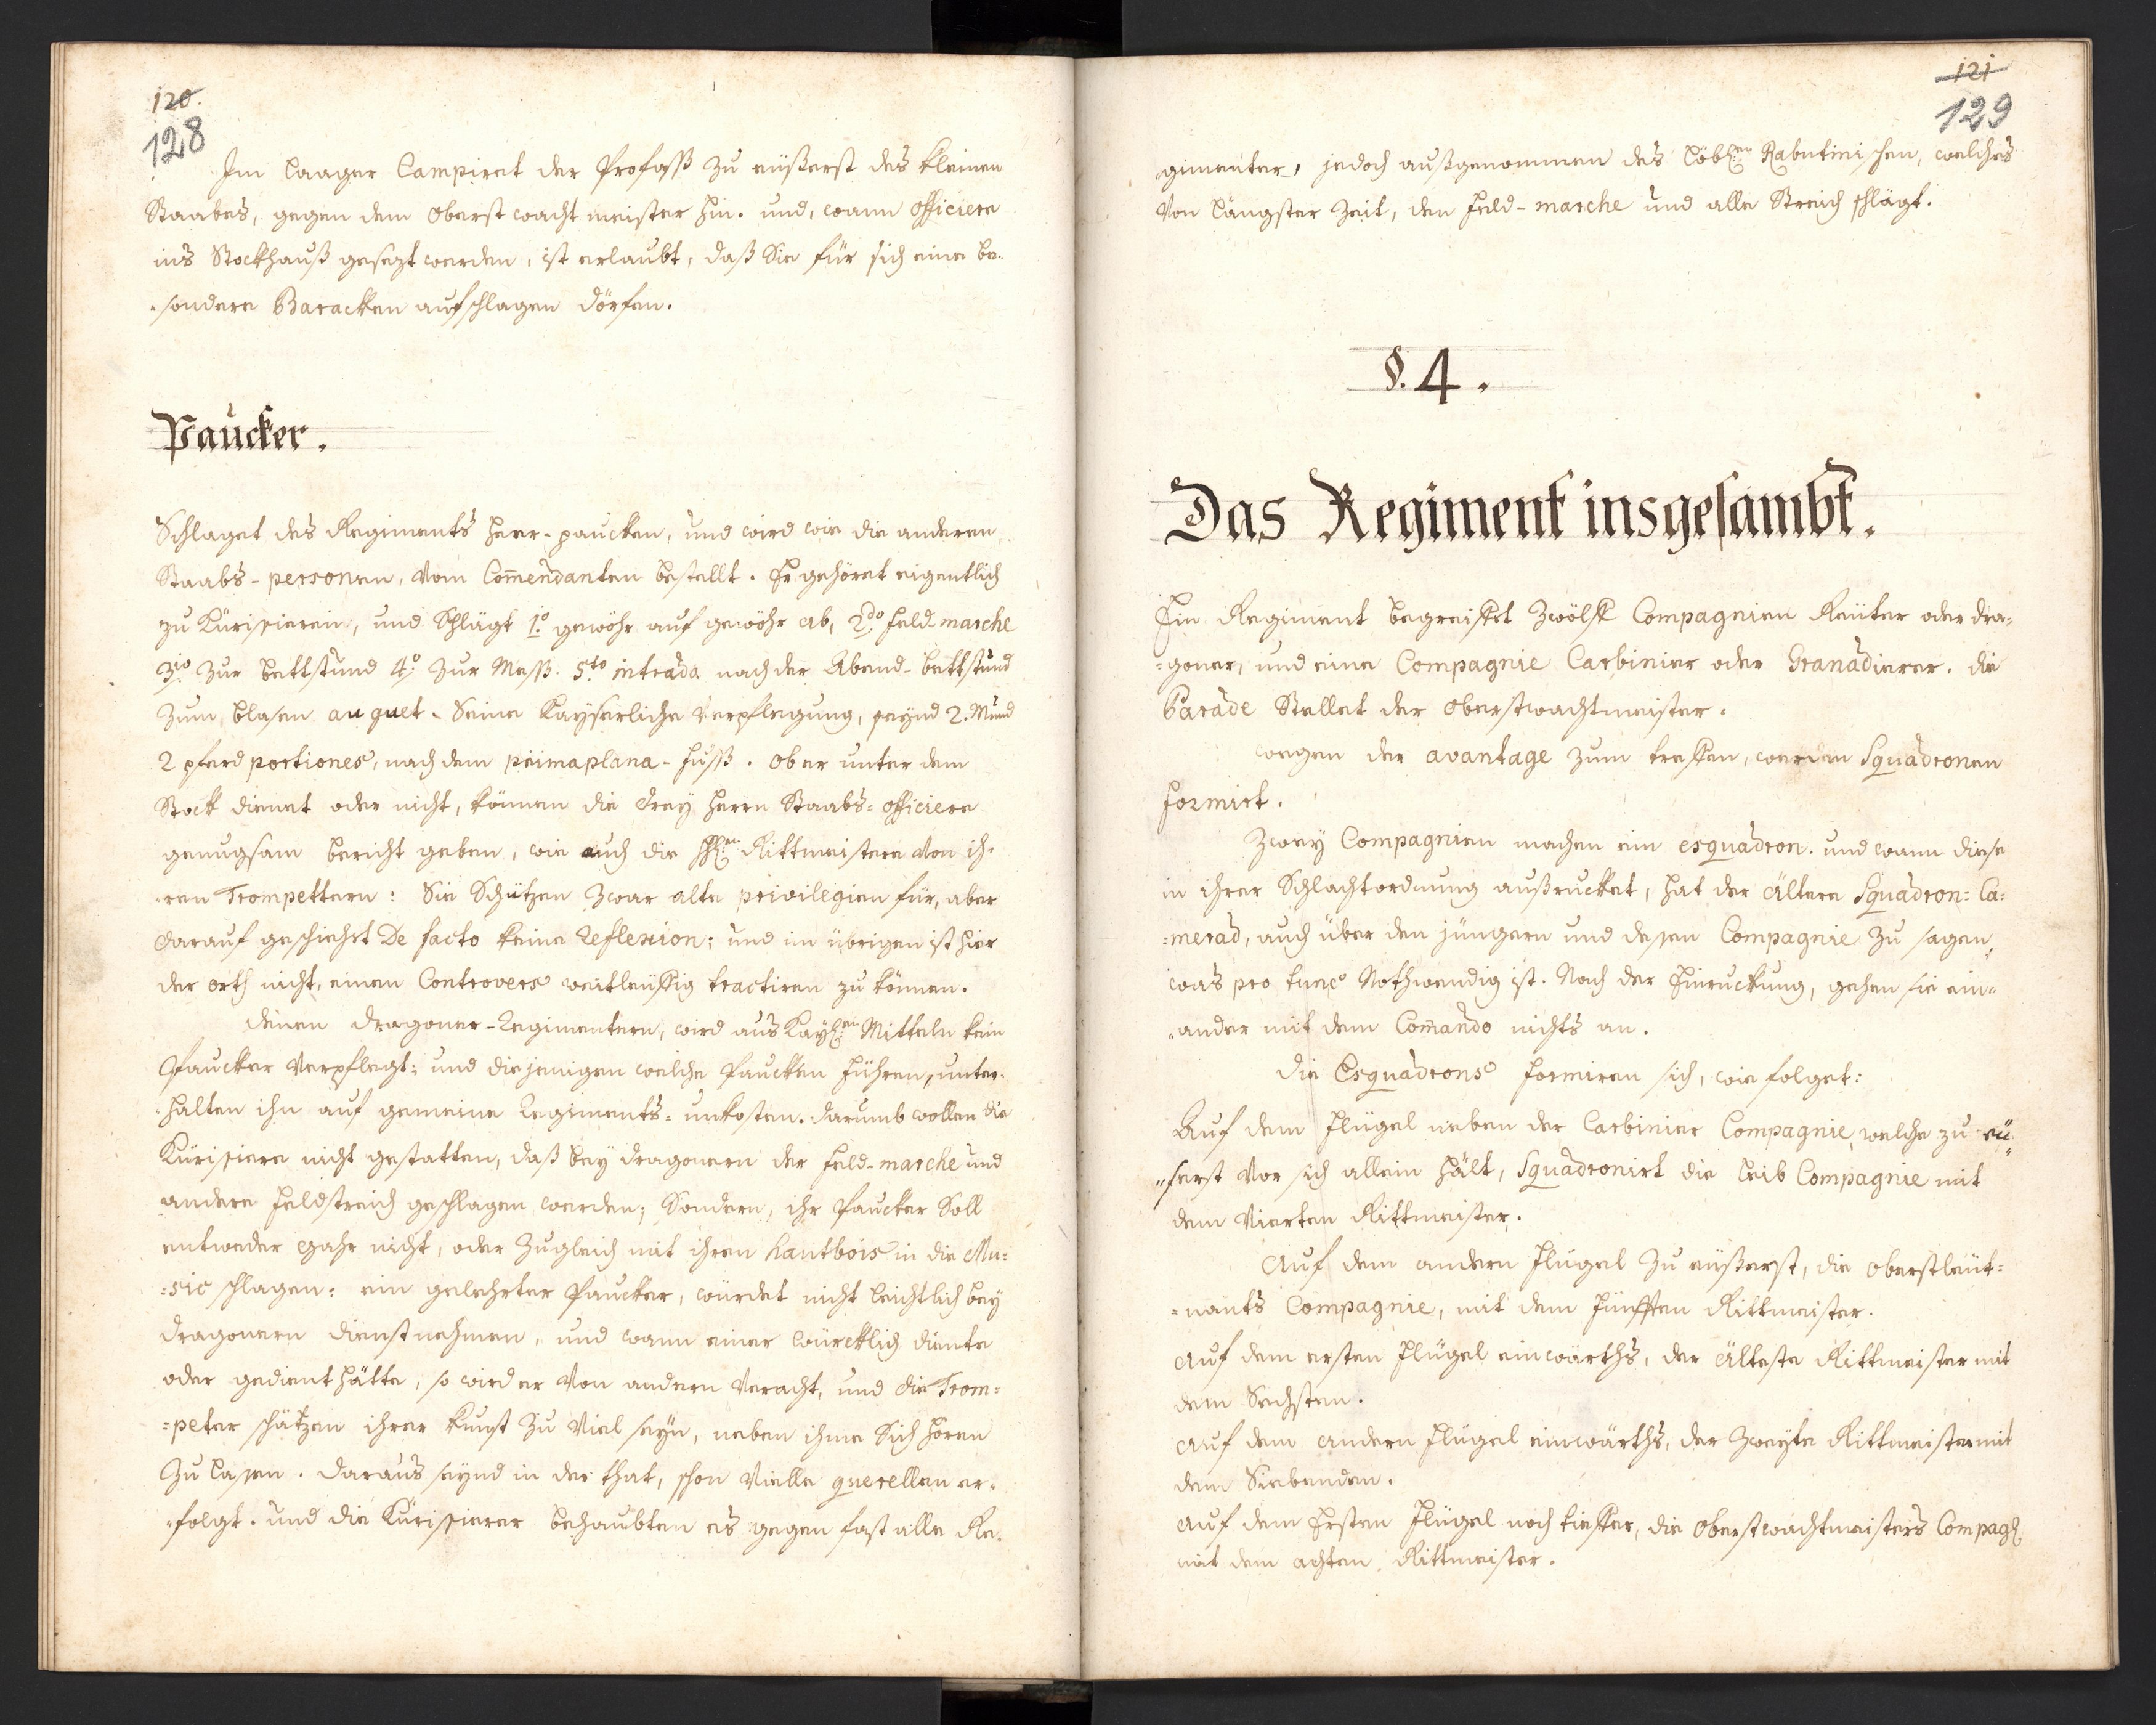 120.
128
Im Laager Campiret der Profoß zu eüßerst des kleinen
Staabes, gegen dem Oberst wacht meister hin. und, wann Officiere
ins Stockhauß gesezt werden, ist erlaubt, daß Sie für sich eine be-
sondere Baracken aufschlagen dörfen.
Paucker.
Schlaget des Regiments heer-paucken, und wird wie die anderen
Staabs-personen, vom Com̄endanten bestellt. Er gehöret eigentlich
zu Kürissieren, und Schlägt 1.º gewöhr auf gewöhr ab, 2.do feld-marche
3.io zur bettstund 4.º zur Meß. 5.to intrada nach der Abend-bettstund
zum blasen au guet. Seine Kayserliche Verpflegung, seynd 2. Mund
2 pferd portiones, nach dem primaplana-fuß. Ob er unter dem
Stock dienet oder nicht, können die drey Herrn Staabs-officiere
genugsam bericht geben, wie auch die HH:en Rittmeistere von ih-
ren Trompettern: Sie Schützen zwar alte privilegien für, aber
darauf geschiehet De facto keine reflexion; und im übrigen ist hier
der orth nicht, einen Controvers weitleüffig tractiren zu können.
Denen Dragoner-Regimentern, wird aus Kay:en Mitteln kein
Paucker verpflegt: und diejenigen welche Paucken führen, unter-
halten ihn auf gemeine Regiments-unkosten. darumb wollen die
Kürissiere nicht gestatten, daß bey dragonern der feld-marche und
andere feldstreich geschlagen werden; Sondern, ihr Paucker Soll
entweder gahr nicht, oder zugleich mit ihren hautbois in die Mu=
=sic schlagen: ein gelehrter Paucker, würdet nicht leichtlich bey
dragonern dienst nehmen, und wann einer würcklich diente
oder gedient hätte, so wird er von andern veracht, und die Trom=
=peter schätzen ihrer kunst zu viel seyn, neben ihme Sich hören
zu lassen. daraus seynd in der that, schon vielle querellen er-
folgt. und die Kürissierer behaubten es gegen fast alle Re-
121
129
gimenter, jedoch außgenommen des Löbl:en Rabutinischen, welches
von längster Zeit, den feld-marche und alle Streich schlägt.
§. 4.
Das Regiment insgesambt.
Ein Regiment begreiffet zwölff Compagnien Reüter oder dra=
=goner, und eine Compagnie Carbinier oder Granadierer. die
Parade Stellet der Oberstwachtmeister.
wegen der avantage zum treffen, werden Squadronen
formirt.
Zwey Compagnien machen ein esquadron. und wann diese
in ihrer Schlachtordnung außrucket, hat der Ältere Squadron=Ca=
=merad, auch über den jüngern und dessen Compagnie zu sagen,
was pro tunc Nothwendig ist. Nach der Einruckung, gehen sie ein-
ander mit dem Com̄ando nichts an.
Die Esquadrons formiren sich, wie folget:
Auf dem flügel neben der Carbinier Compagnie, welche zu eü-
serst vor sich allein hält, Squadronirt die Leib Compagnie mit
dem Vierten Rittmeister.
Auf dem andern flügel zu eüßerst, die Oberstleüt=
=nants Compagnie, mit dem fünfften Rittmeister.
Auf dem ersten flügel einwärths, der Älteste Rittmeister mit
dem Sechsten.
Auf dem andern flügel einwärths, der Zweyte Rittmeister mit
dem Siebenden.
Auf dem Ersten flügel noch tieffer, die Oberstwachtmeisters Compag:
mit dem achten Rittmeister.